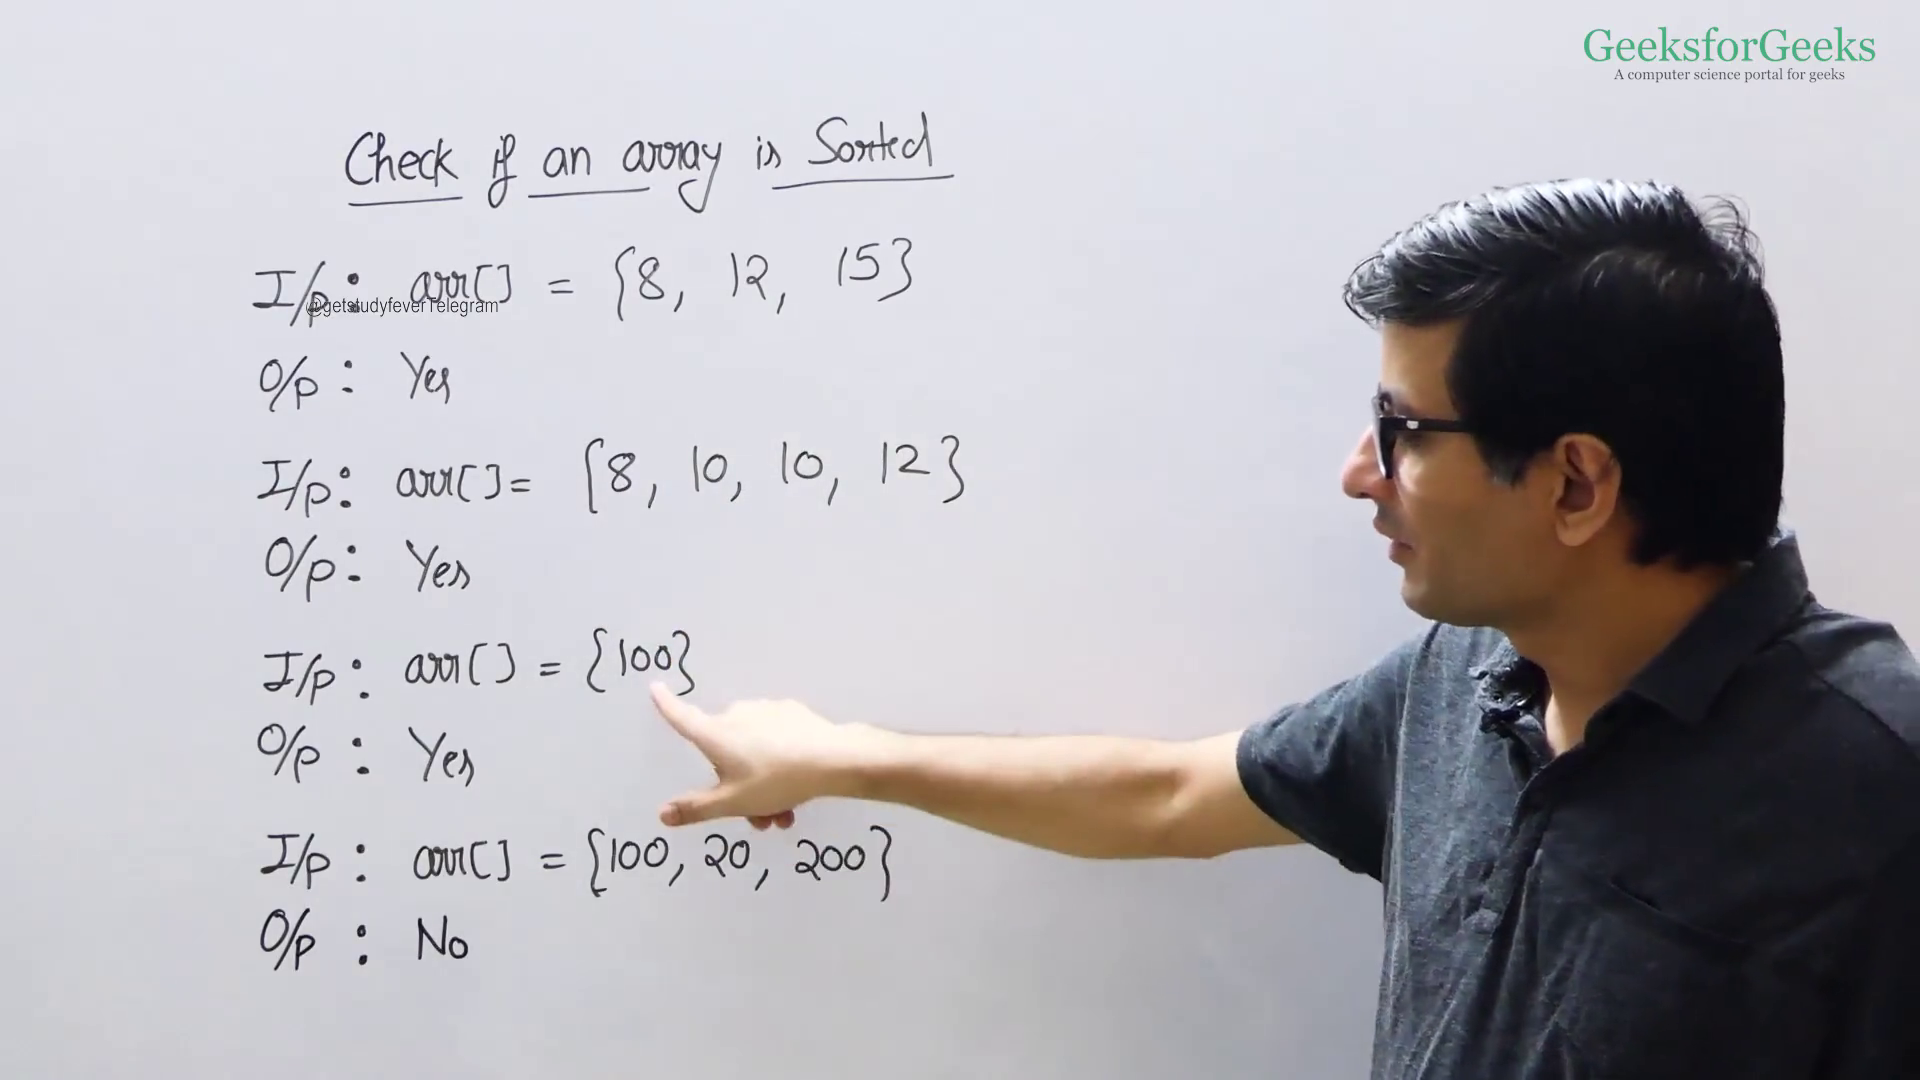 GeeksforGeeks
A computer science portal for geeks
Check if an array is Sorted
I/p: arr[] = {8, 12, 15}
@getstudyfeverTelegram
O/p: Yes
I/p: arr[] = {8, 10, 10, 12}
O/p: Yes
I/p: arr[] = {100}
O/p: Yes
I/p: arr[] = {100, 20, 200}
O/p: No